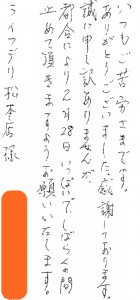 いつもご苦労さまです。
ありがとうございました。感謝しております。
誠に申し訳ありませんが、
都合により2月28日いっぱいで、しばらくの間
止めて頂きますようお願いいたします。
ライフデリ 松本店 様